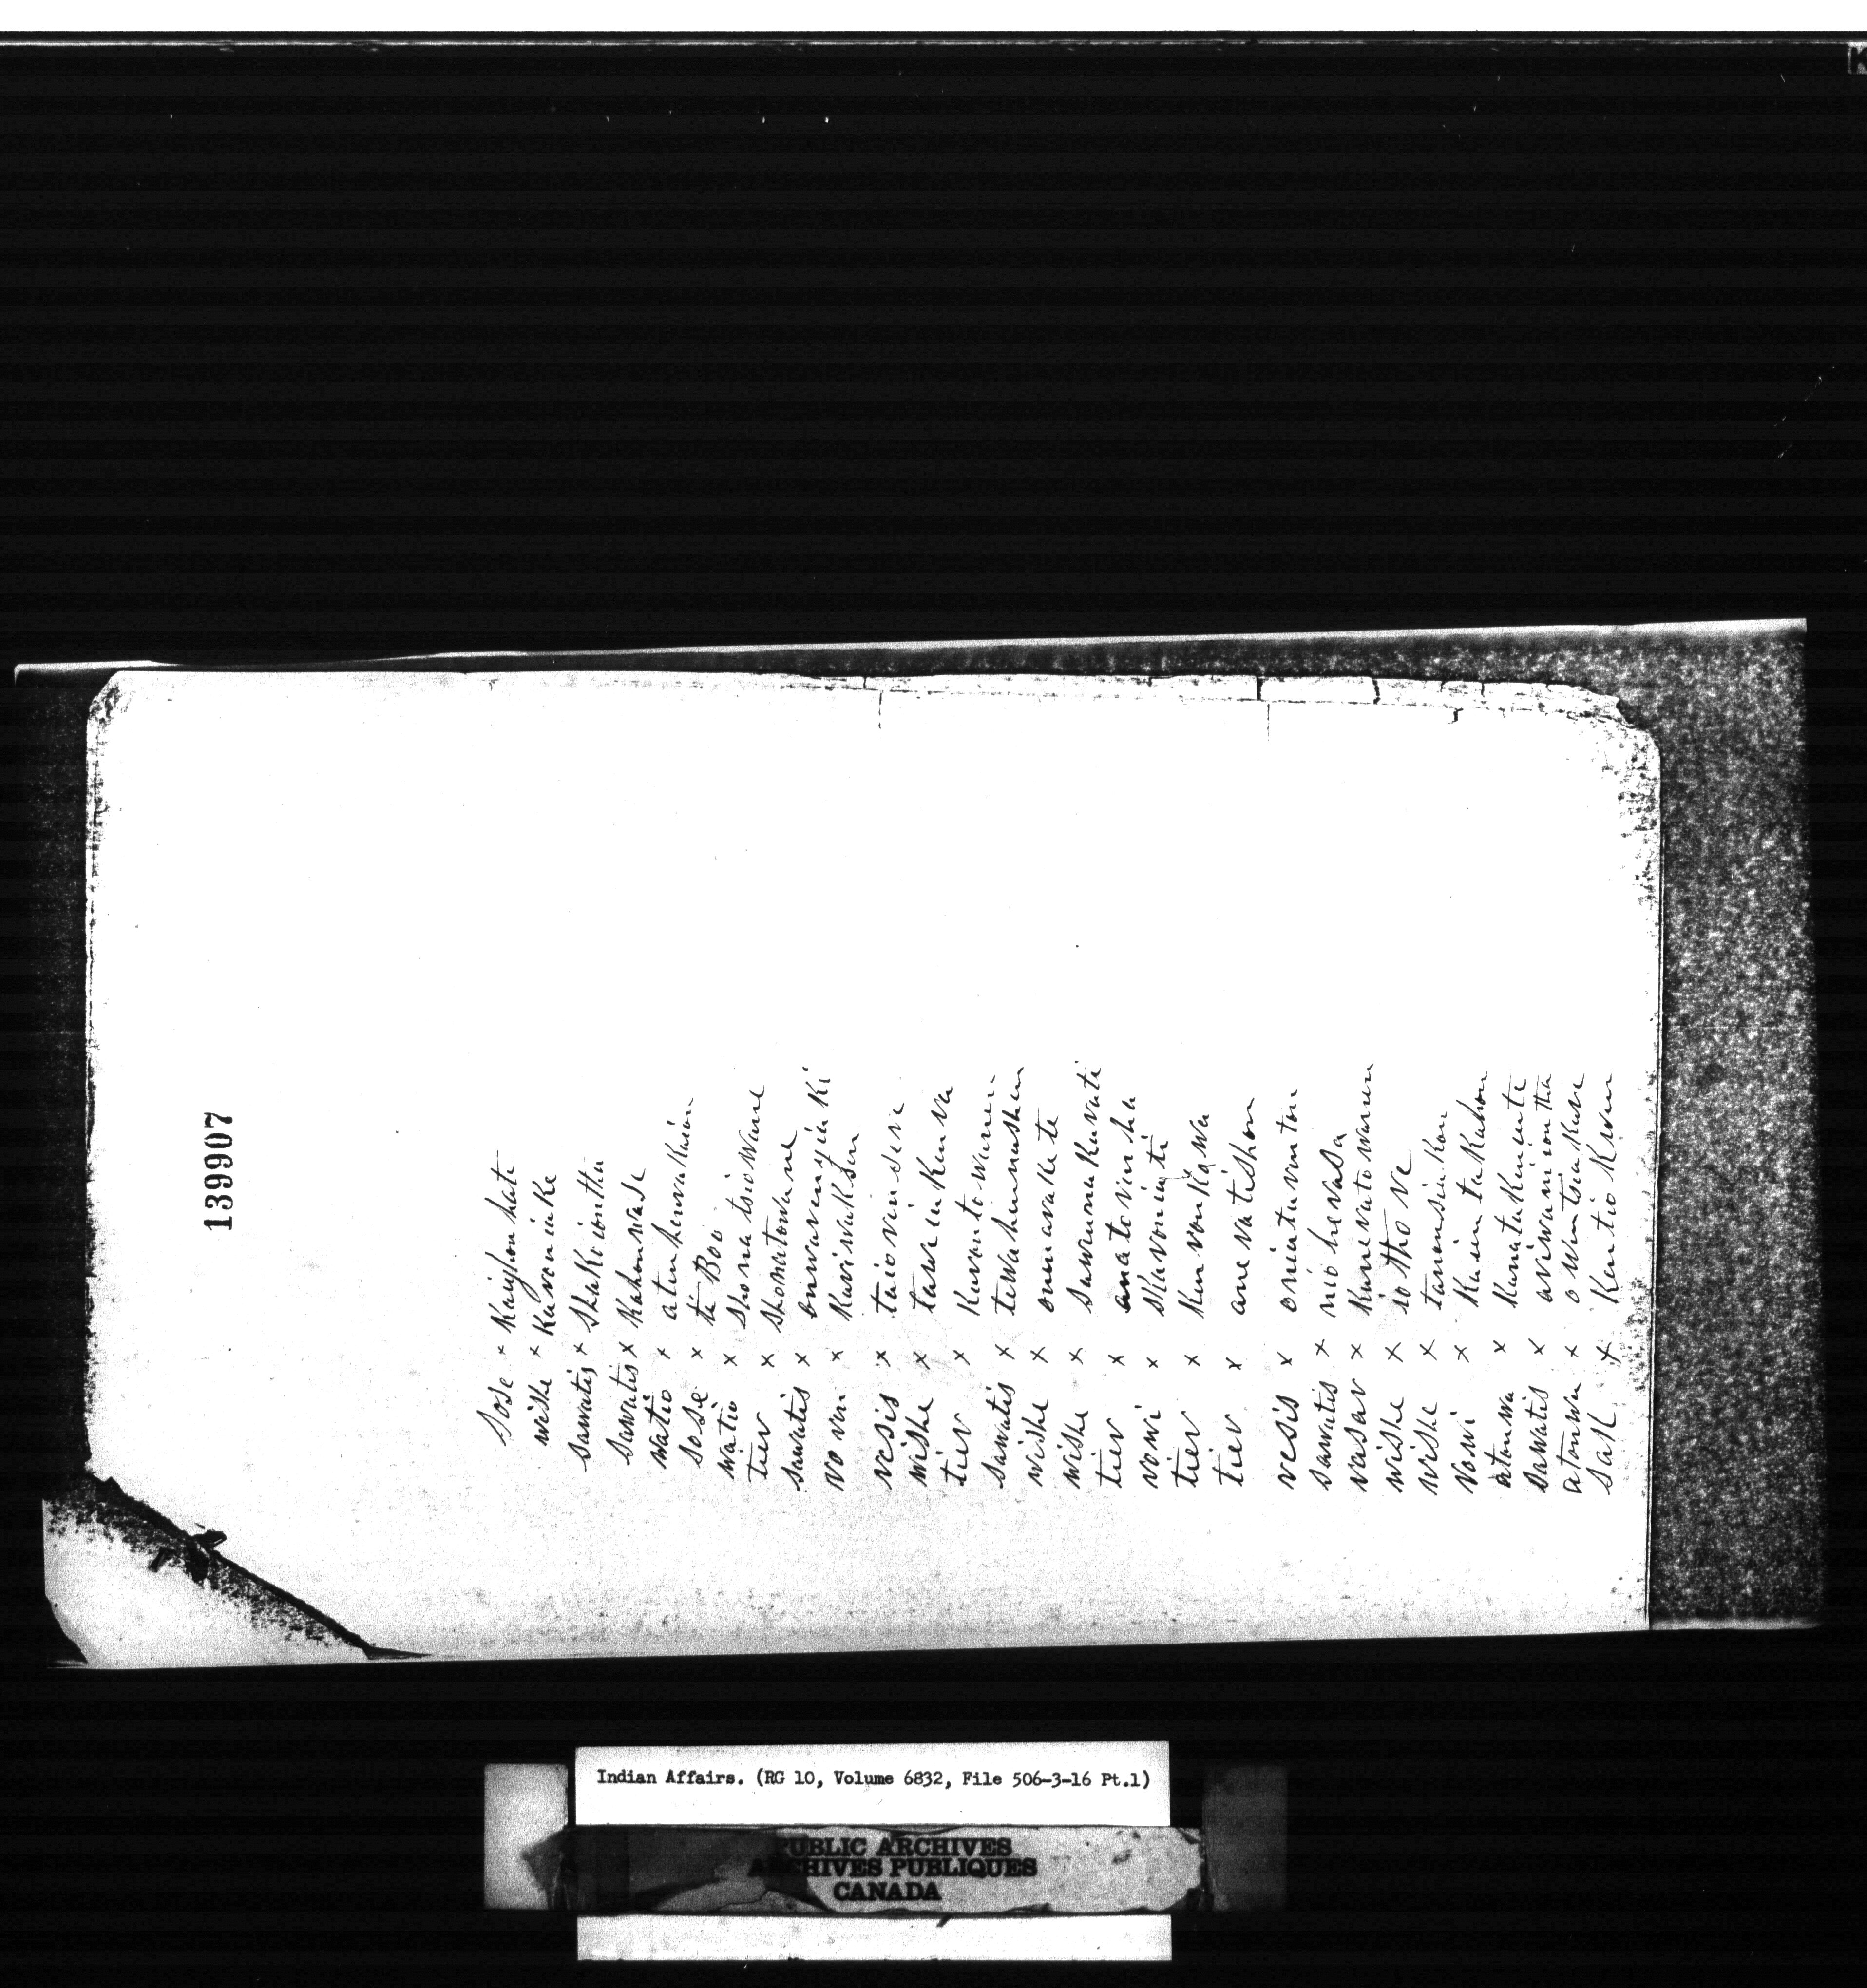 139907
Sose x Kaiyhon hate
wishe x Karoniake
sawatis x Skakoiontha
Sawatis x Kahonwase
watio x atenhenrakaion
sose x te Boo
watio x Shonatsiowane
tier x Shonatowane
Sawatis x onwariyinki
ro ren x Kariwakeren
resis x taiorensere
wishe x taweinkenra
tier x Karontowanen
Sawatis x tewahennashen
wishe x onenarakete
wishe x Sawennakarati
tier x anatorenha
romi x Skaroniati
tier x Kenronkawa
tier x aneratishon
resis x oneiataronton
sawatis x nioherasa
rasar x Kaneratowanen
wishe x iottho re
wishe x tanonsiakon
romi x Kasentakahon
atonwa x Kanatakeniate
Sawatis x ariwaniontha
atonwa x owentsiakere
Sak x Kentiokwen
Indian Affairs. (RG 10, Volume 6832, File 506-3-16 Pt.1)
PUBLIC ARCHIVES
ARCHIVES PUBLIQUES
CANADA